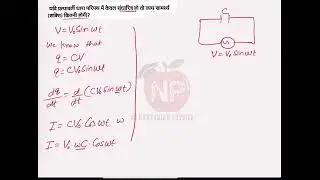 यदि प्रत्यावर्ती धारा परिपथ में केवल संधारित्र हो तो व्यय सामर्थ्य
(शक्ति) कितनी होगी?
V=V₀Sinωt
we know that
q = CV
q = CV₀Sinωt
dq/dt = d/dt (CV₀Sinωt)
I = CV₀·Cosωt·ω
I = V₀ωC·Cosωt
C
V
NP